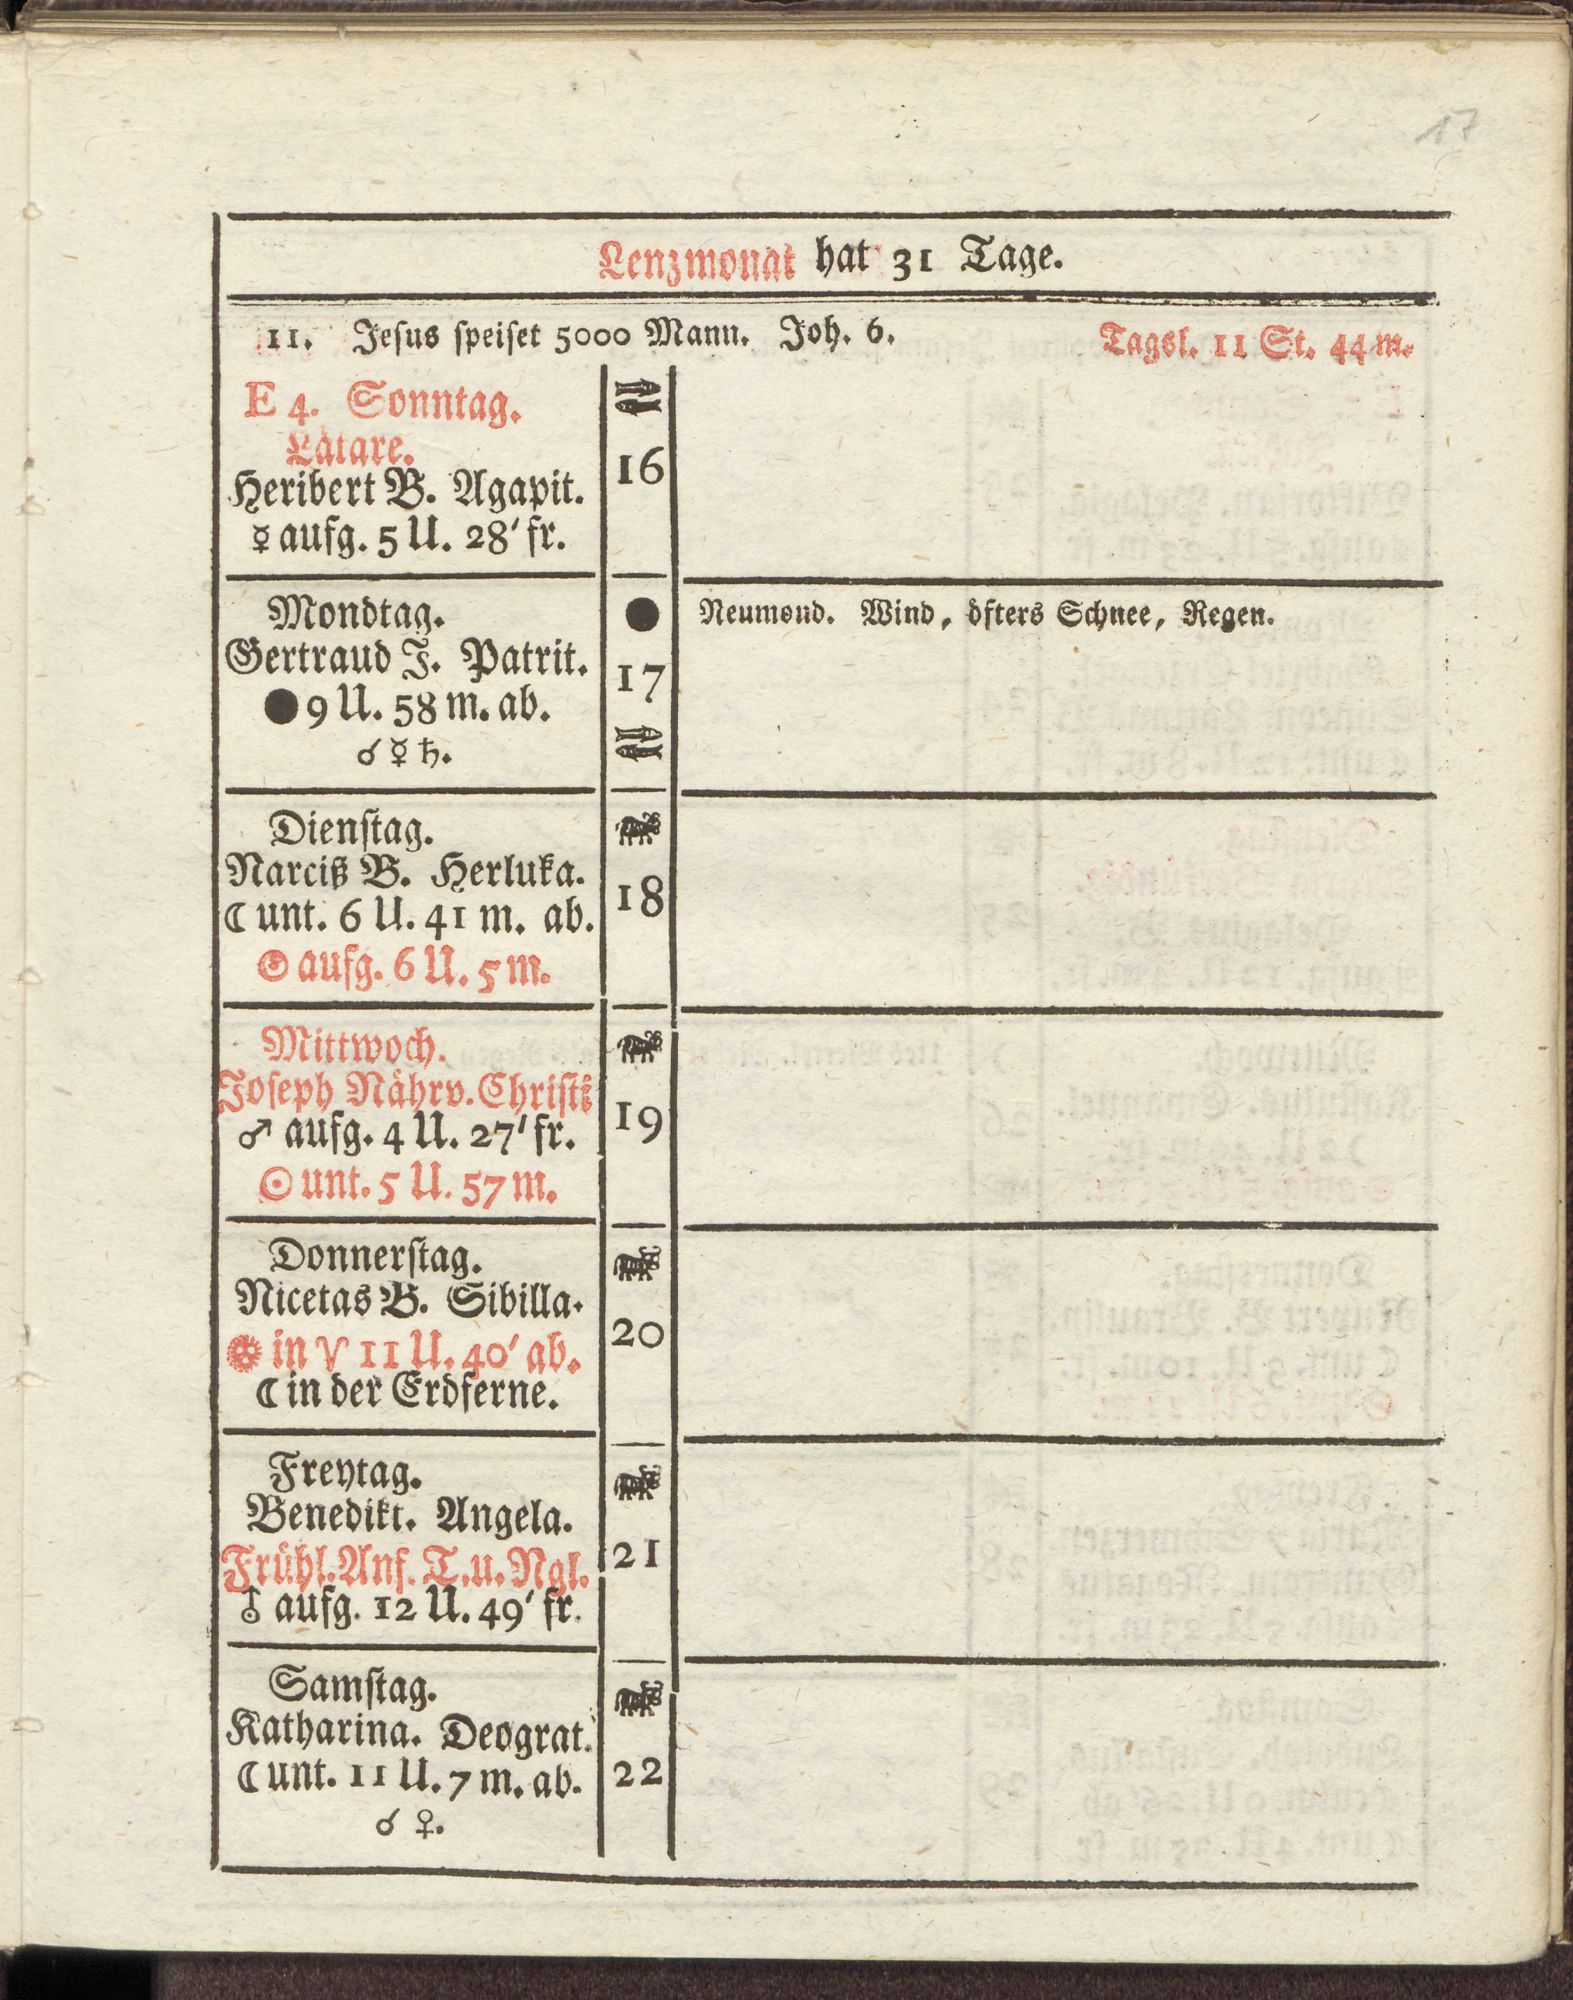 17
Lenzmonat hat 31 Tage.
11. Jesus speiset 5000 Mann. Joh. 6. Tagsl. 11 St. 44 m.
E 4. Sonntag.
Lätare.
Heribert B. Agapit.
☿ aufg. 5 U. 28' fr.
16
Mondtag.
Gertraud J. Patrit.
● 9 U. 58 m. ab.
☌ ☿ ♄.
● 17
Neumond. Wind, öfters Schnee, Regen.
Dienstag.
Narciß B. Herluka.
☾ unt. 6 U. 41 m. ab.
☉ aufg. 6 U. 5 m.
18
Mittwoch.
Joseph Nährv. Christi
♂ aufg. 4 U. 27' fr.
☉ unt. 5 U. 57 m.
19
Donnerstag.
Nicetas B. Sibilla.
☉ in ♈ 11 U. 40' ab.
☾ in der Erdferne.
20
Freytag.
Benedikt. Angela.
Frühl. Anf. T. u. Ngl.
♁ aufg. 12 U. 49' fr.
21
Samstag.
Katharina. Deograt.
☾ unt. 11 U. 7 m. ab.
☌ ♀.
22